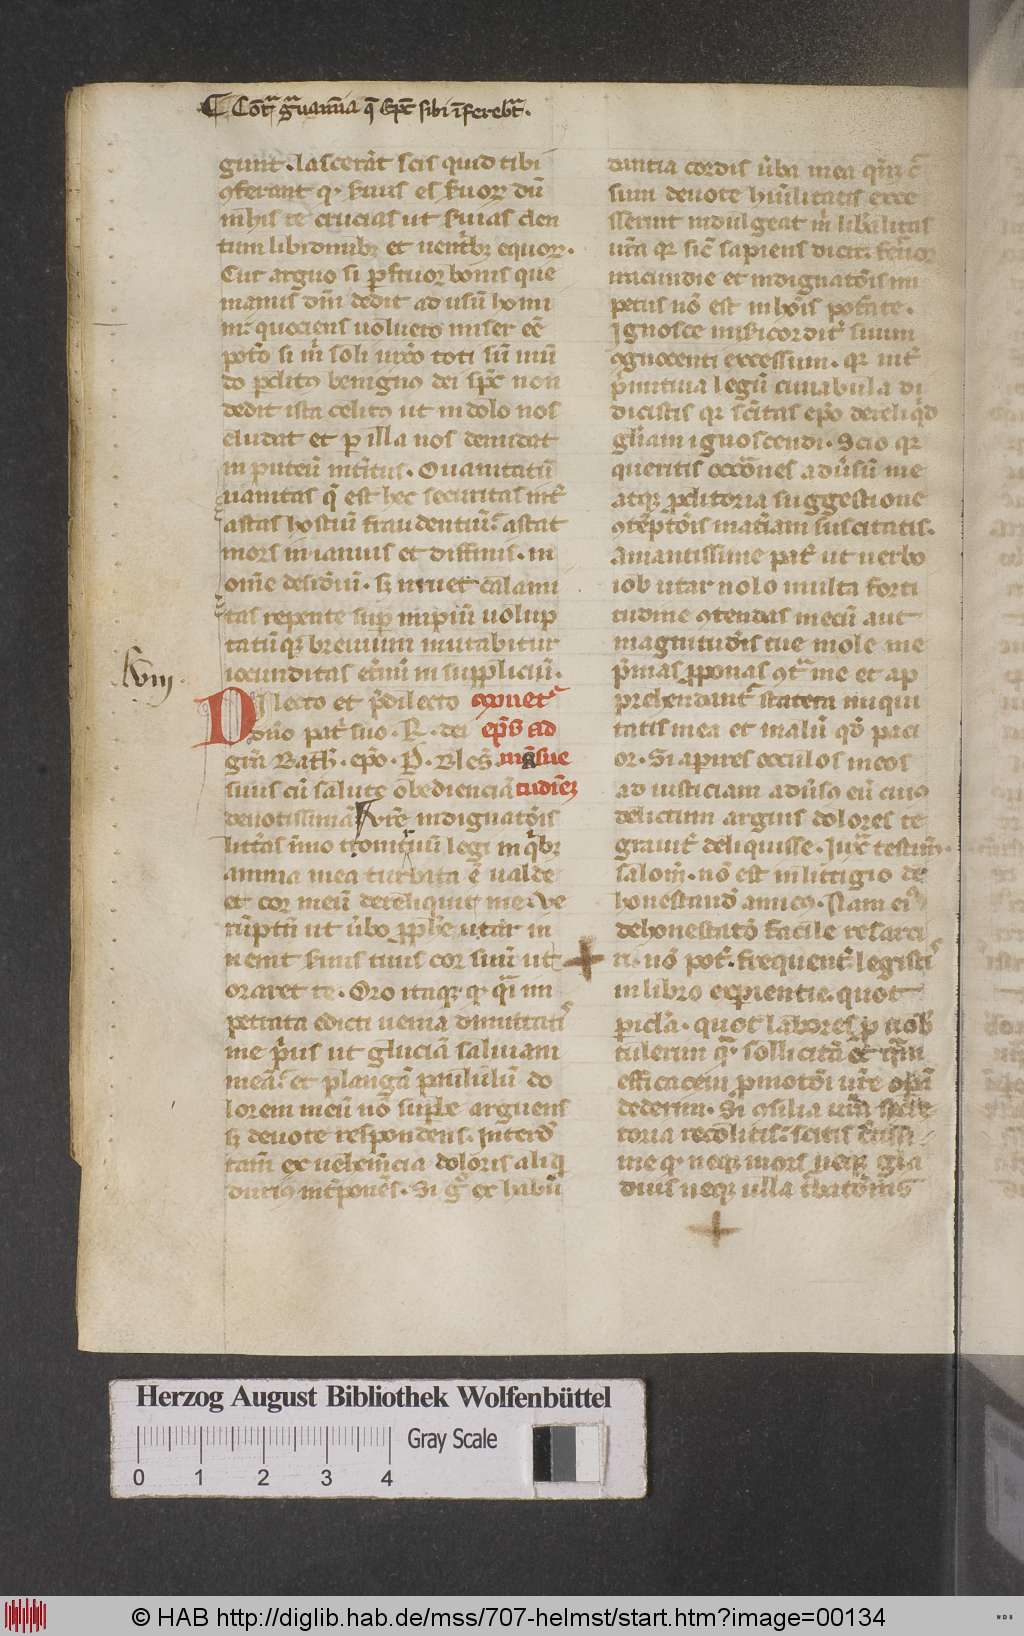 Cot͞ gͣuamīa q̄ Ep̄c sibi īferebͣt.
gunt. lascerāt scis quid tibi
ꝯferant qꝫ seruis es seruor̄ dū
in his te crucias ut seruias
tum libidinibꝫ et uentribꝫ equor̄.
Cur arguo si perfruor bonis que
manus dn̄i dedit ad usū homi
ni: quociens uoluero miser eē
pot̄o si m̄ soli
do benignꝰ dei sp̄c non
dedit ista celitꝰ ut in dolo nos
eludat et p illa nos
in puteū int̄itus. O uanitatū
uanitas q̄ est hec securitas int̄
astas hostiū fraudentiū. astat
mors in ianuis et diffinis. in
om̄e desid̄iū. sꝫ irruet calami
tas repente suꝑ impiū uolup
tatūqꝫ breuium mutabitur
iocunditas et̄nū in suppliciū.
xviij.
Dilecto et p̄dilecto Monet
dn̄o pat̄ suo. R. dei ep̄s ad
gr̄a Bath. ep̄o. P. Bles. māsue
suus cū salute obedienciā tudiēꝫ
deuotissimā Vr̄e indignatōis
litt̄as īmo tonit̄uū legi in qͥbꝫ
anima mea turbata ē ualde
et cor meū dereliquit me. Ve
rūptn̄ ut ūbo ꝓph̄e utar in
uenit seruus tuus cor suū ut
oraret te. Oro itaqꝫ qꝫ qͣm im
petrata edicti uenia dimittatͬ
me pͥus ut gluciā saliuam
meā. et plangā paululū do
lorem meū nō suꝑbe arguens
sꝫ deuote respondens. Interdū
tam̄ ex uehemēcia doloris aliqͥd
durius int̄ponēs. Si gͦ ex habū
dantia cordis ūba mea qn̄
sum deuote hūilitatis exce
sserint indulgeat m̄ lib̄alitas
ur̄a qꝛ sic̄ sapiens dicit. feruor
iracundie et indignatōis im
petus nō est in hoīs potͣate.
Ignosce misericordit̄ suum
ꝯgnoscenti excessum. qꝛ int̄
pͥmitiua legū cunabula di
dicistis qꝛ sc̄itas ep̄o dereliqͥd
gl̄iam ignoscendi. Scio qꝛ
queritis occōnes adūsū me
atqꝫ ꝓditoria suggestione
ꝯt̄eptōis mat̄iam suscitatis.
Amantissime pat̄ ut uerbo
iob utar nolo multa forti
tudine ꝯtendas mecū aut
magnitudīs tue mole me
pͥmas ꝓponas ꝯtͣ me et ap
prehendant stateram iniqui
tatis mea et malū qd̄ paci
or. Si aperies occulos meos
ad iusticiam adūsꝰ eū cuiꝰ
delictum arguis dolores te
grauit̄ deliquisse. Iuxͣ testim̄.
salom̄. nō est in litigio de
honestandꝰ amicꝰ. Nam eiꝰ
dehonestatō facile resarci
ri. nō pot̄. frequent̄ legistiˢ
in libro experientie. quot
picl̄a. quot labores ꝓ uob̄
tulerim qͣ sollicitā et qͣm
efficacem ꝓmotōi ur̄e opā
dederim. Si ꝯsilia ur̄a
toria recolitis. scitis
me qꝫ neqꝫ mors neqꝫ gla
dius neqꝫ ulla
Herzog August Bibliothek Wolfenbüttel
Gray Scale
0 1 2 3 4
© HAB http://diglib.hab.de/mss/707-helmst/start.htm?image=00134